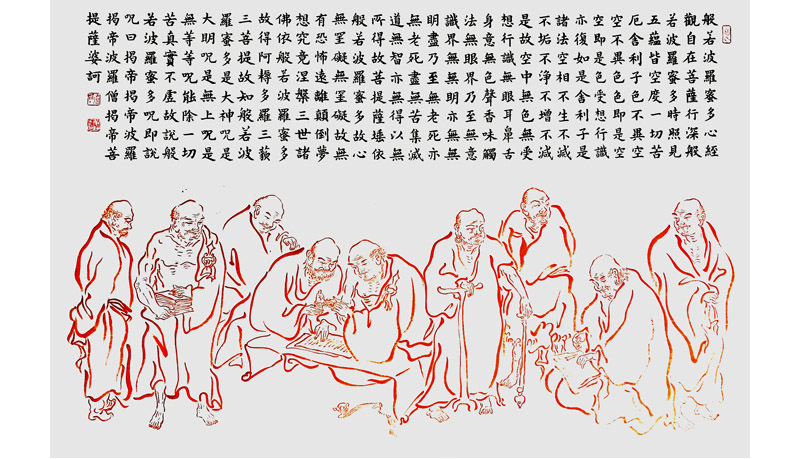 般若波羅蜜多心經
觀自在菩薩行深般
若波羅蜜多時照見
五蘊皆空度一切苦
厄舍利子色不異空
空不異色色即是空
空即是色受想行識
亦復如是舍利子是
諸法空相不生不滅
不垢不淨不增不減
是故空中無色無受
想行識無眼耳鼻舌
身意無色聲香味觸
法無眼界乃至無意
識界無無明亦無無
明盡乃至無老死亦
無老死盡無苦集滅
道無智亦無得以無
所得故菩提薩埵依
般若波羅蜜多故心
無罣礙無罣礙故無
有恐怖遠離顛倒夢
想究竟涅槃三世諸
佛依般若波羅蜜多
故得阿耨多羅三藐
三菩提故知般若波
羅蜜多是大神呪是
大明呪是無上呪是
無等等呪能除一切
苦真實不虛故說般
若波羅蜜多呪即說
呪曰揭帝揭帝波羅
揭帝波羅僧揭帝菩
提薩婆訶